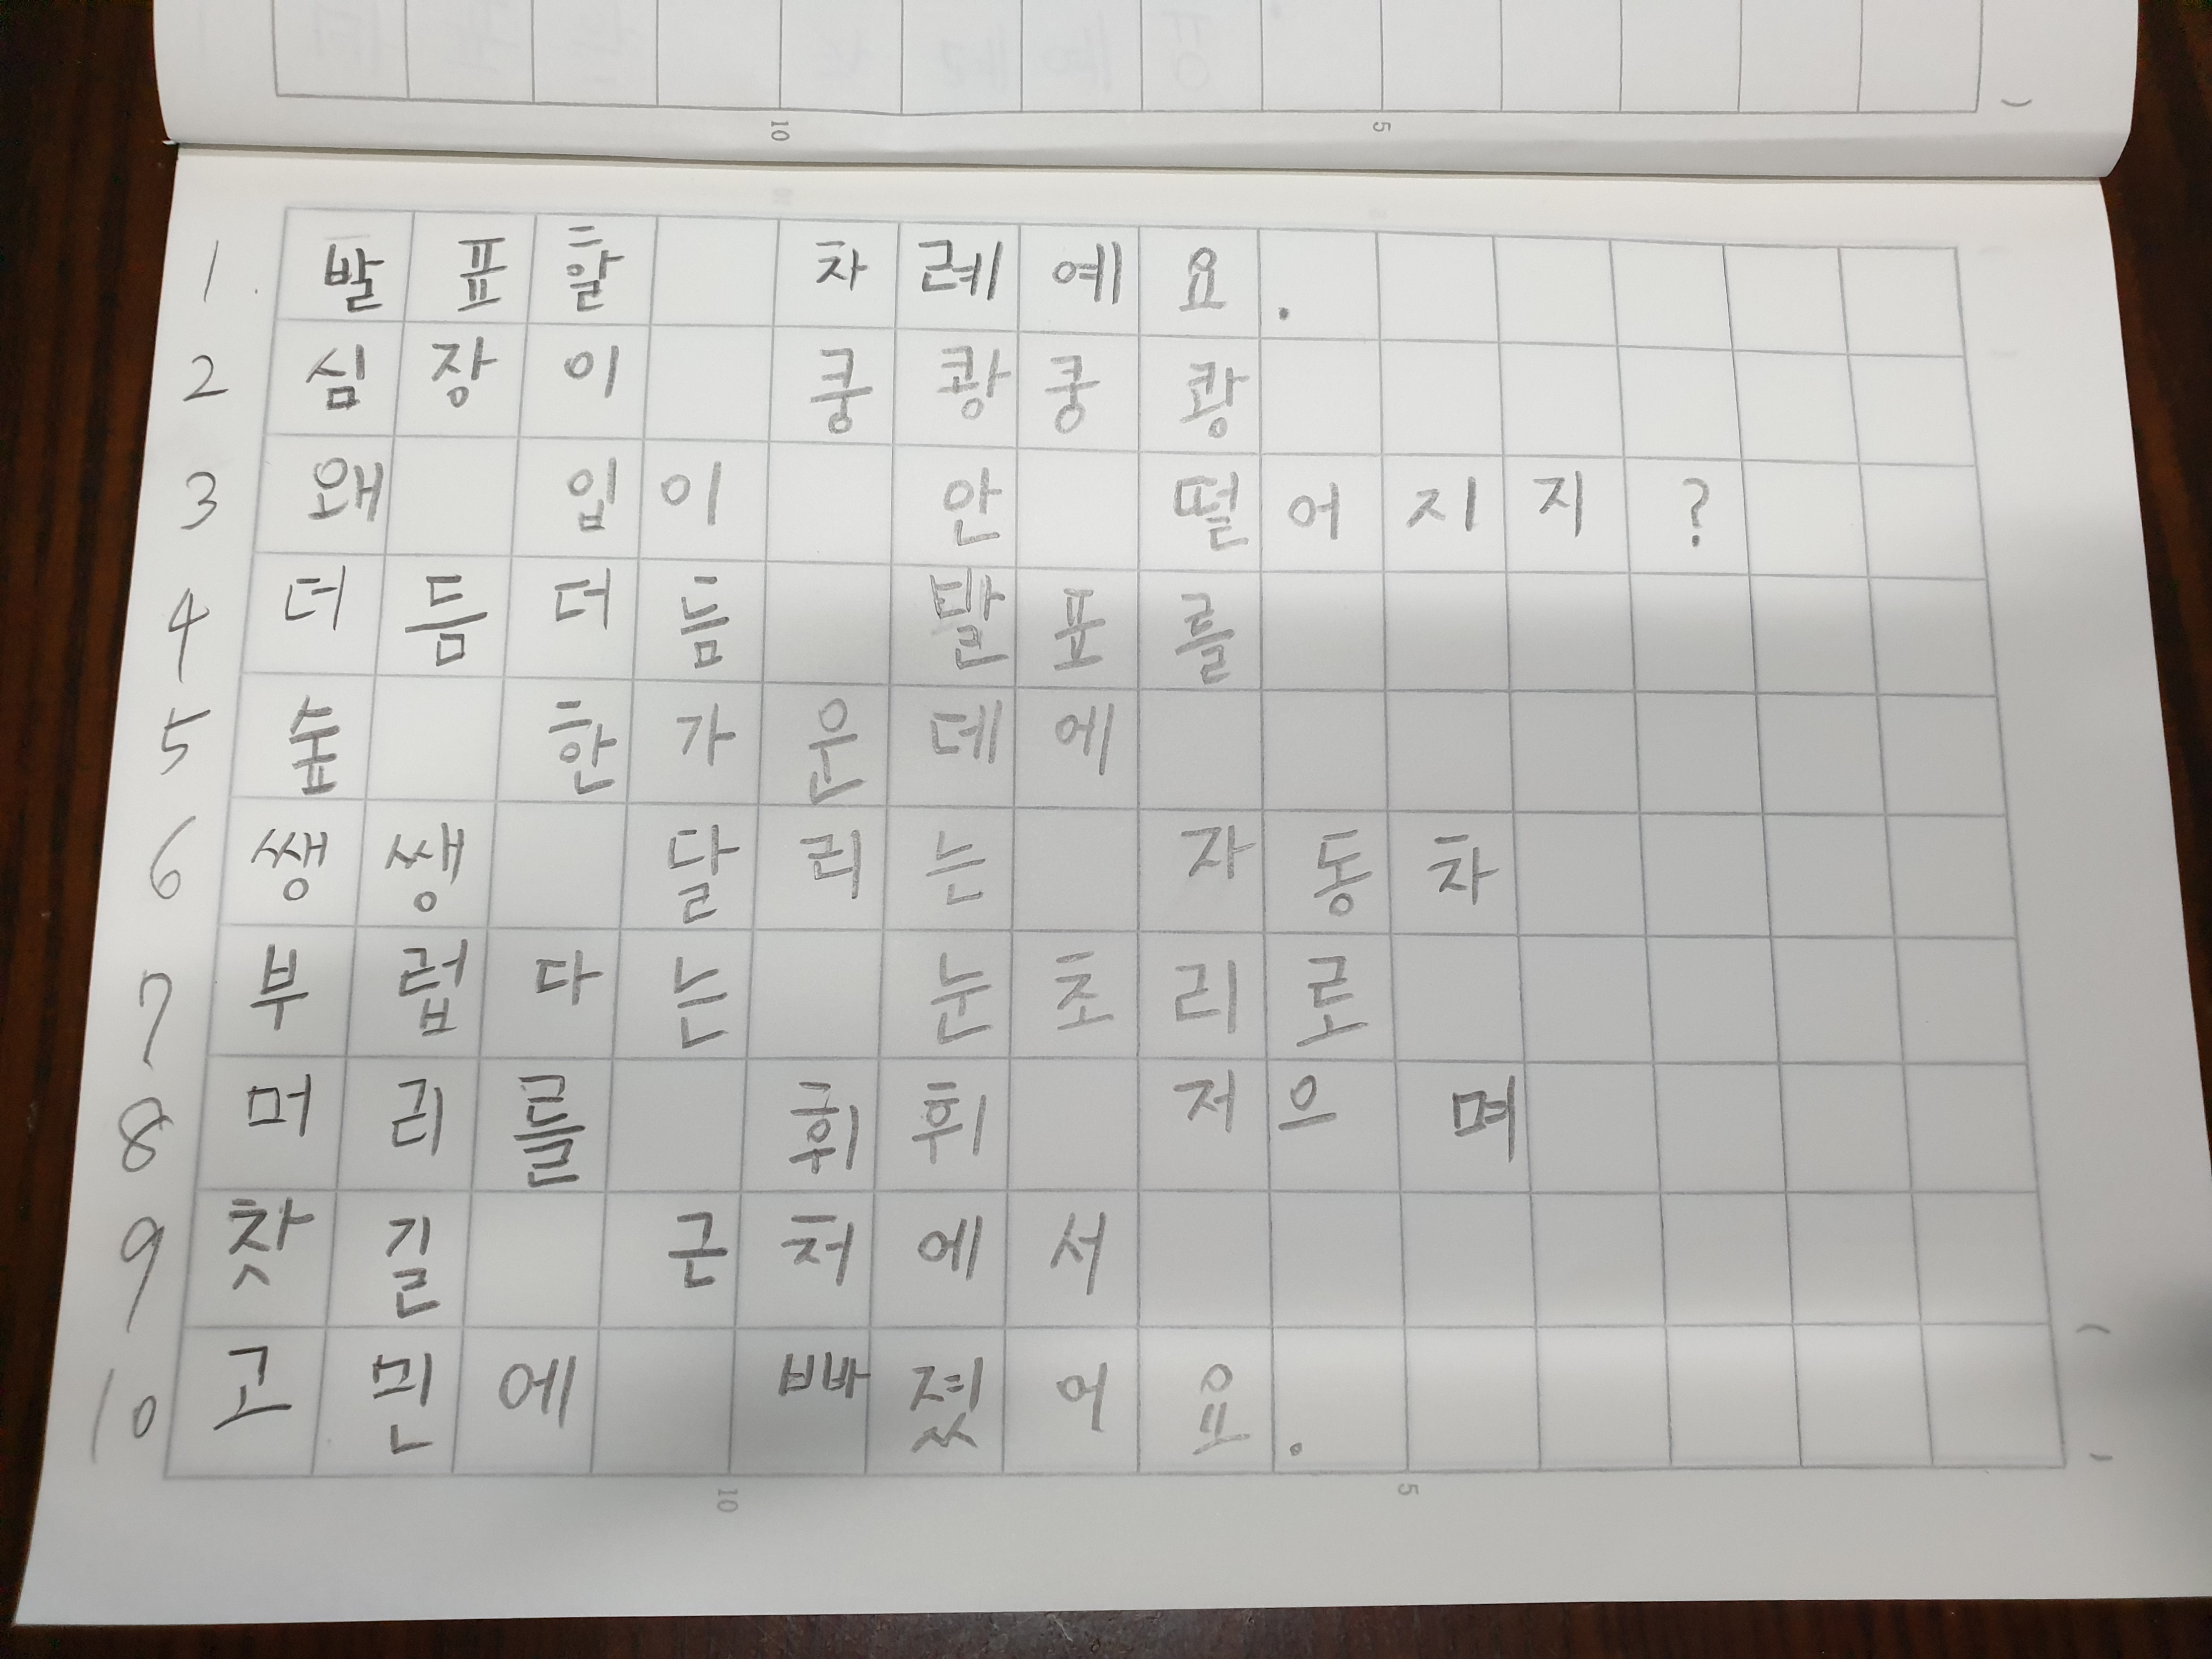 10 5
1. 발표할 차례에요.
2 심장이 쿵쾅쿵쾅
3 왜 입이 안 떨어지지?
4 더듬더듬 발표를
5 숲 한가운데에
6 쌩쌩 달리는 자동차
7 부럽다는 눈초리로
8 머리를 휘휘 저으며
9 찻길 근처에서
10 고민에 빠졌어요.
10 5